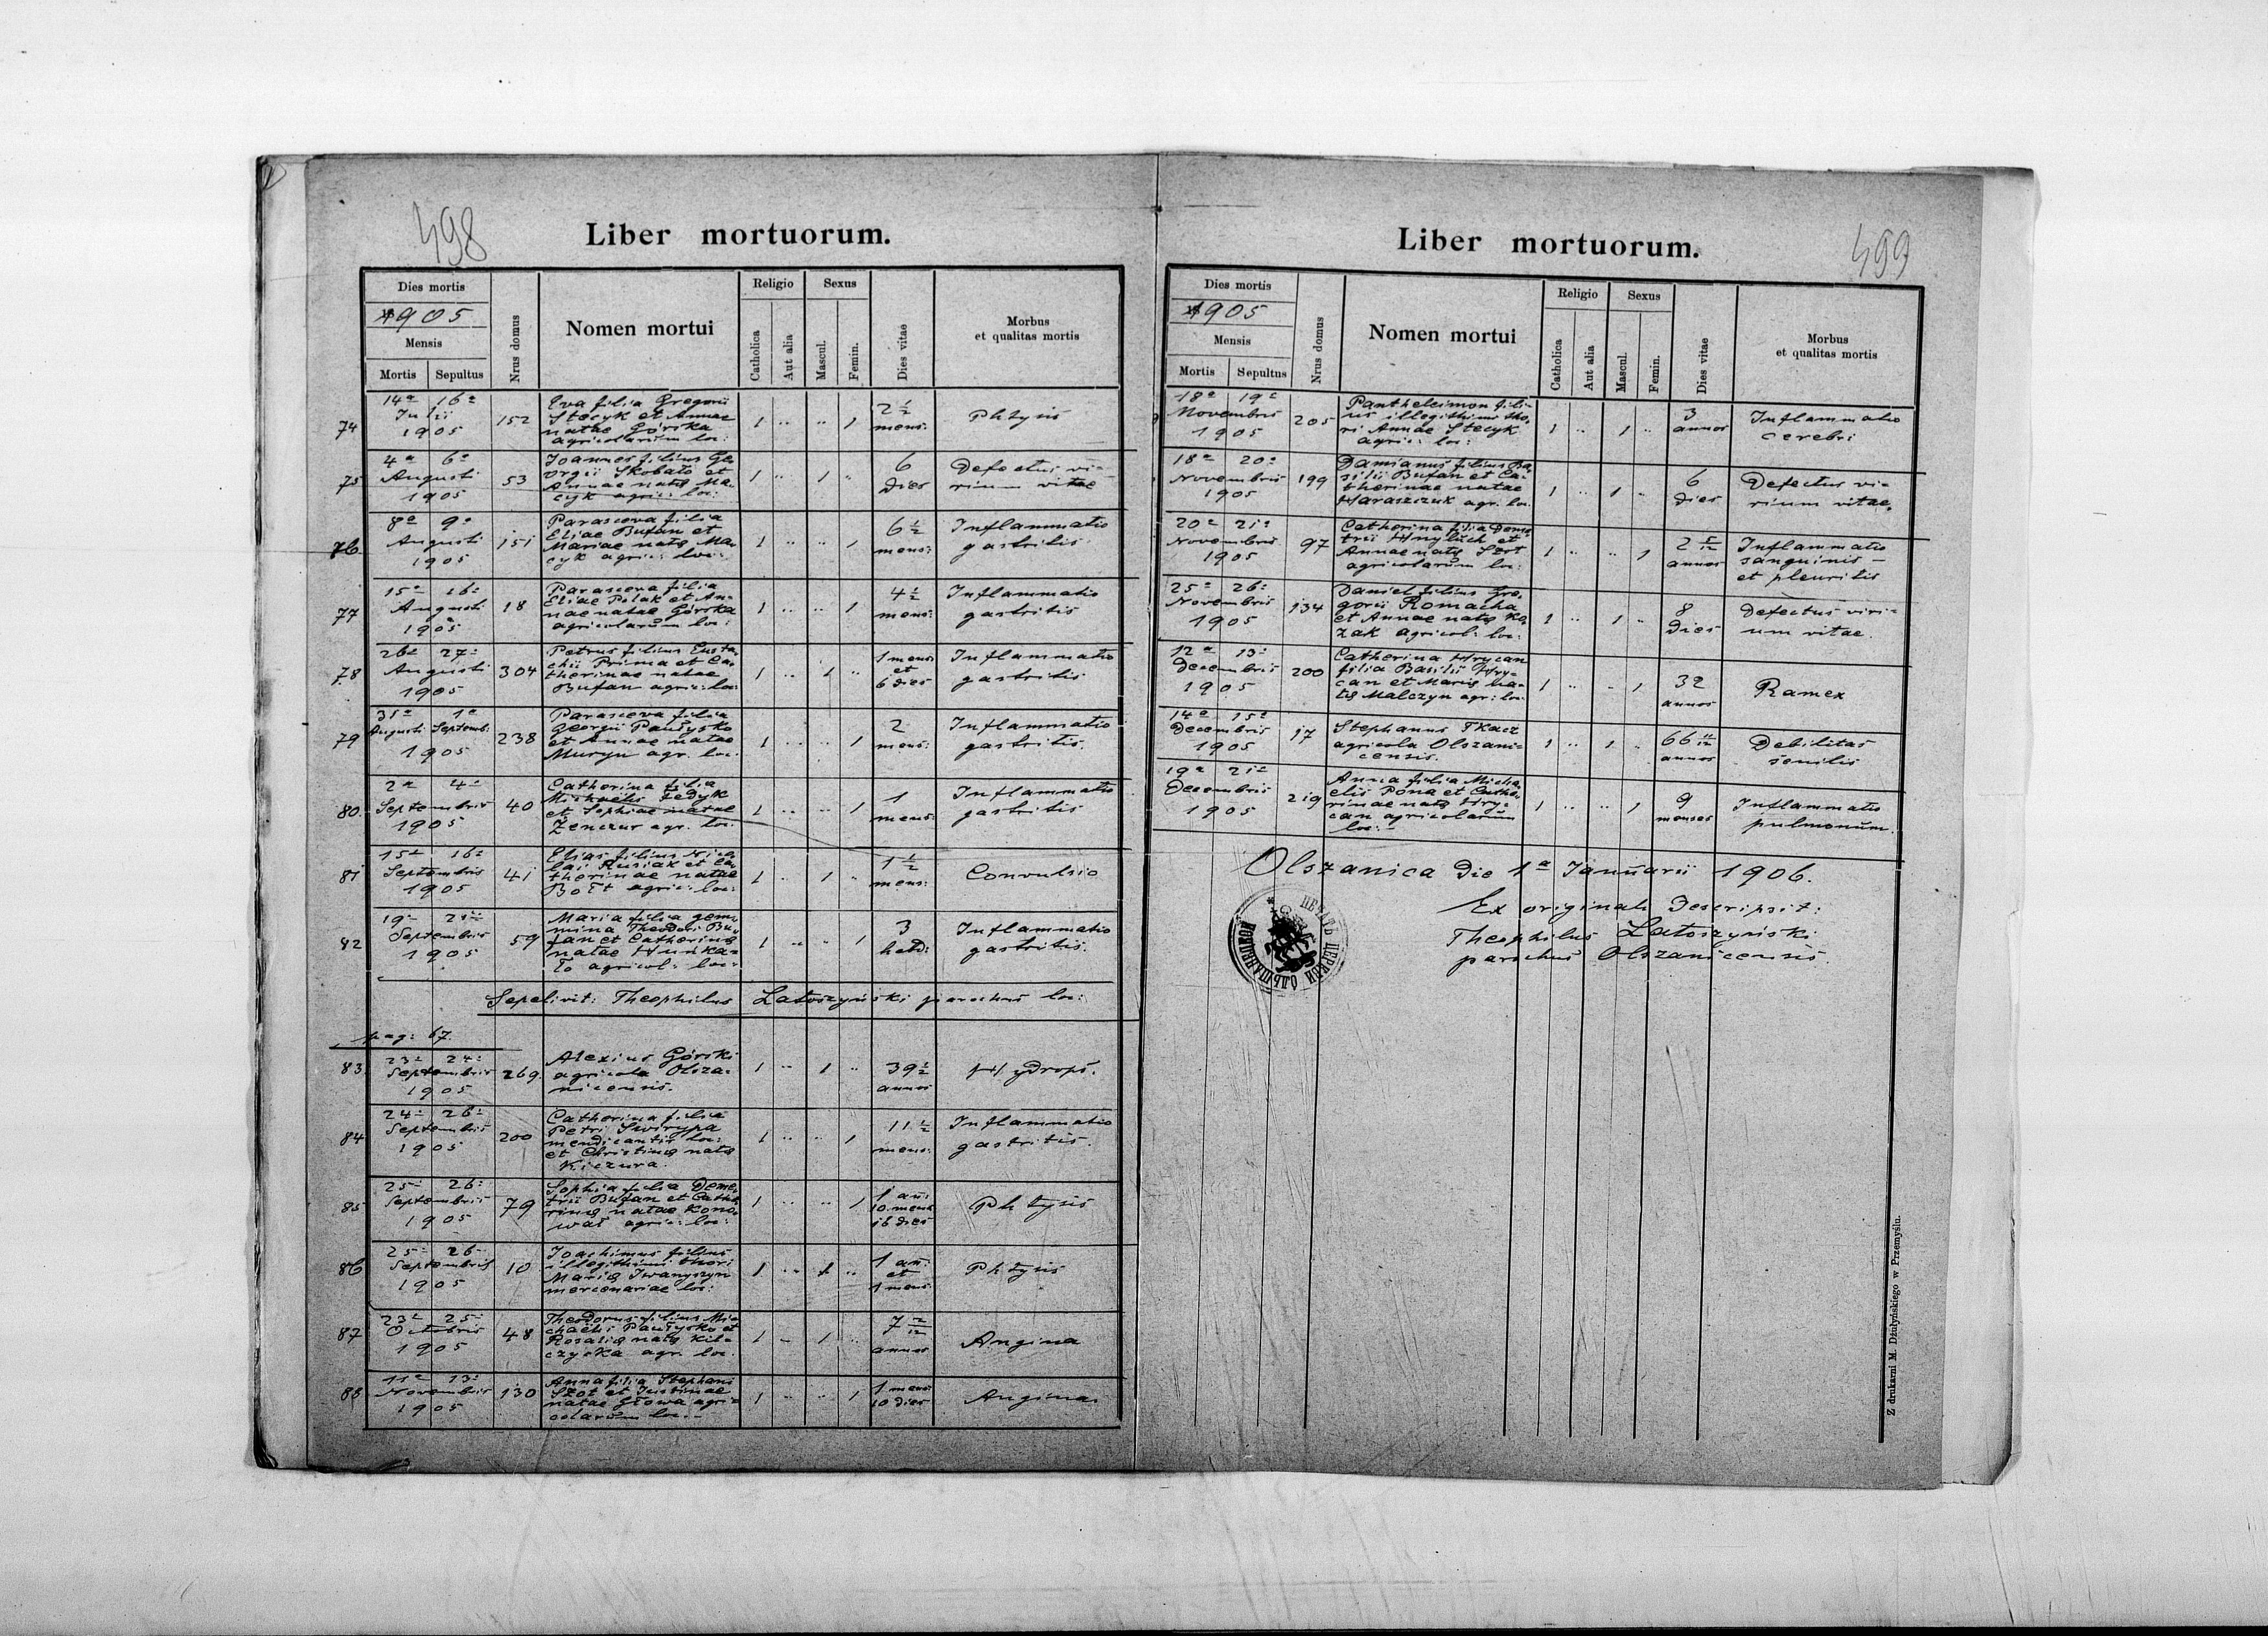 498
Liber mortuorum.
Dies mortis
1905
Mensis
Mortis Sepultus
Nrus domus
Nomen mortui
Religio
Catholica
Aut alia
Sexus
Mascul.
Femin.
Dies vitae
Morbus
et qualitas mortis
74
14a 16a
Julii
1905
152
Eva filia Gregorii
Stecyk et Annae
natae Górska
agricolarum loc:
1 .. .. 1
2 1/2
mens:
Phtysis
75
4a 6a
Augusti
1905
53
Joannes filius Ge-
orgii Skobało et
Annae natae Ma-
cyk agric: loc:
1 .. 1 ..
6
dies
Defectus vi-
rium vitae
76
8a 9a
Augusti
1905
151
Parasceva filia
Eliae Bufan et
Mariae natae Ma-
cyk agric: loc:
1 .. .. 1
6 1/2
mens:
Inflammatio
gastritis
77
15a 16a
Augusti
1905
18
Parasceva filia
Eliae Polak et An-
nae natae Górska
agricolarum loc:
1 .. .. 1
4 1/2
mens:
Inflammatio
gastritis
78
26a 27a
Augusti
1905
304
Petrus filius Eusta-
chii Prima et Ca-
therinae natae
Bufan agric: loc:
1 .. 1 ..
1 mens
et
6 dies
Inflammatio
gastritis
79
31a 1a
Augusti Septemb.
1905
238
Parasceva filia
Georgii Pawłysko
et Annae natae
Muryn agr. loc.
1 .. .. 1
2
mens:
Inflammatio
gastritis.
80.
2a 4a
Septembris
1905
40
Catherina filia
Michaelis Fedyk
et Sophiae natae
Zenczur agr. loc.
1 .. 1
1
mens:
Inflammatio
gastritis
81
15a 16a
Septembris
1905
41
Elias filius Nico-
lai Rusiak et Ca-
therinae natae
agric: loc:
1 .. 1 ..
1 1/2
mens:
Convulsio
82
19a 21a
Septembris
1905
59
Maria filia gem-
mina Theodori Bu-
fan et Catherinae
natae Hunka-
ło agricol: loc:
1 .. .. 1
3
hebd:
Inflammatio
gastritis.
Sepelivit: Theophilus Latoszyński parochus loc:
pag: 67.
83.
23a 24a
Septembris
1905
269.
Alexius Górski
agricola Olsza-
nicensis.
1 .. 1 ..
39 1/2
annos
Hydrops.
84
24a 26a
Septembris
1905
200
Catherina filia
Petri Swirypa
mendicantis loc:
et Christinae natae
Kiczura.
1 .. .. 1
11 1/2
mens:
Inflammatio
gastritis.
85
25a 26a
Septembris
1905
79
Sophia filia Deme-
trii Bufan et Cathe-
rinae natae Kono-
wał agric: loc:
1 .. .. 1
1 an:
10 mens
16 dies
Phtysis
86
25a 26a
Septembris
1905
10
Joachimus filius
illegithimi thori
Mariae Iwanyszyn
mercenariae loc:
1 .. 1 ..
1 an:
et
1 mens:
Phtysis
87
23a 25a
Octobris
1905
48
Theodorus filius Mi-
chaelis Pawłysko et
Rosaliae natae Kil-
czycka agr. loc.
1 .. 1 ..
7 2/12
annos
Angina
88
11a 13a
Novembris
1905
130
Anna filia Stephani
Szot et Justinae
natae Głowa agri-
colarum loc.-
1 .. .. 1
1 mens:
10 dies
Angina
499
Liber mortuorum.
Dies mortis
1905
Mensis
Mortis Sepultus
Nrus domus
Nomen mortui
Religio
Catholica
Aut alia
Sexus
Mascul.
Femin.
Dies vitae
Morbus
et qualitas mortis
18a 19a
Novembris
1905
205
Pantheleimon fili-
us illegithimi tho-
ri Annae Stecyk
agric: loc:
1 .. 1 ..
3
annos
Inflammatio
cerebri
18a 20a
Novembris
1905
199
Damianus filius Ba-
silii Bufan et Ca-
therinae natae
Haraszczuk agr. loc.
1 .. 1 ..
6
dies
Defectus vi-
rium vitae.
20a 21a
Novembris
1905
97
Catherina filia Deme-
trii Hnyłuch et
Annae natae Szot
agricolarum loc:
1 .. .. 1
2 5/12
annos
Inflammatio
sanguinis -
et pleuritis
25a 26a
Novembris
1905
134
Daniel filius Gre-
gorii Romacha
et Annae natae Ko-
zak agricol: loc:
1 .. 1 ..
8
dies
Defectus viri-
um vitae.
12a 13a
Decembris
1905
200
Catherina Hrycan
filia Basilii Hry-
can et Mariae na-
tae Malczyn agr: loc:
1 .. .. 1
32
annos
Ramex
14a 15a
Decembris
1905
17
Stephanus Tkacz
agricola Olszani-
censis.
1 .. 1 ..
66 11/12
annos
Debilitas
senilis
19a 21a
Decembris
1905
219
Anna filia Micha-
elis Pona et Cathe-
rinae natae Hry-
can agricolarum
loc:-
1 .. .. 1
9
menses
Inflammatio
pulmonum.
Olszanica die 1a Januarii 1906.
Ex originali descripsit:
Theophilus Latoszyński
parochus Olszanicensis.
ПЕЧАТЬ ЦЕРКВИ
Z drukarni M. Dżułyńskiego w Przemyślu.